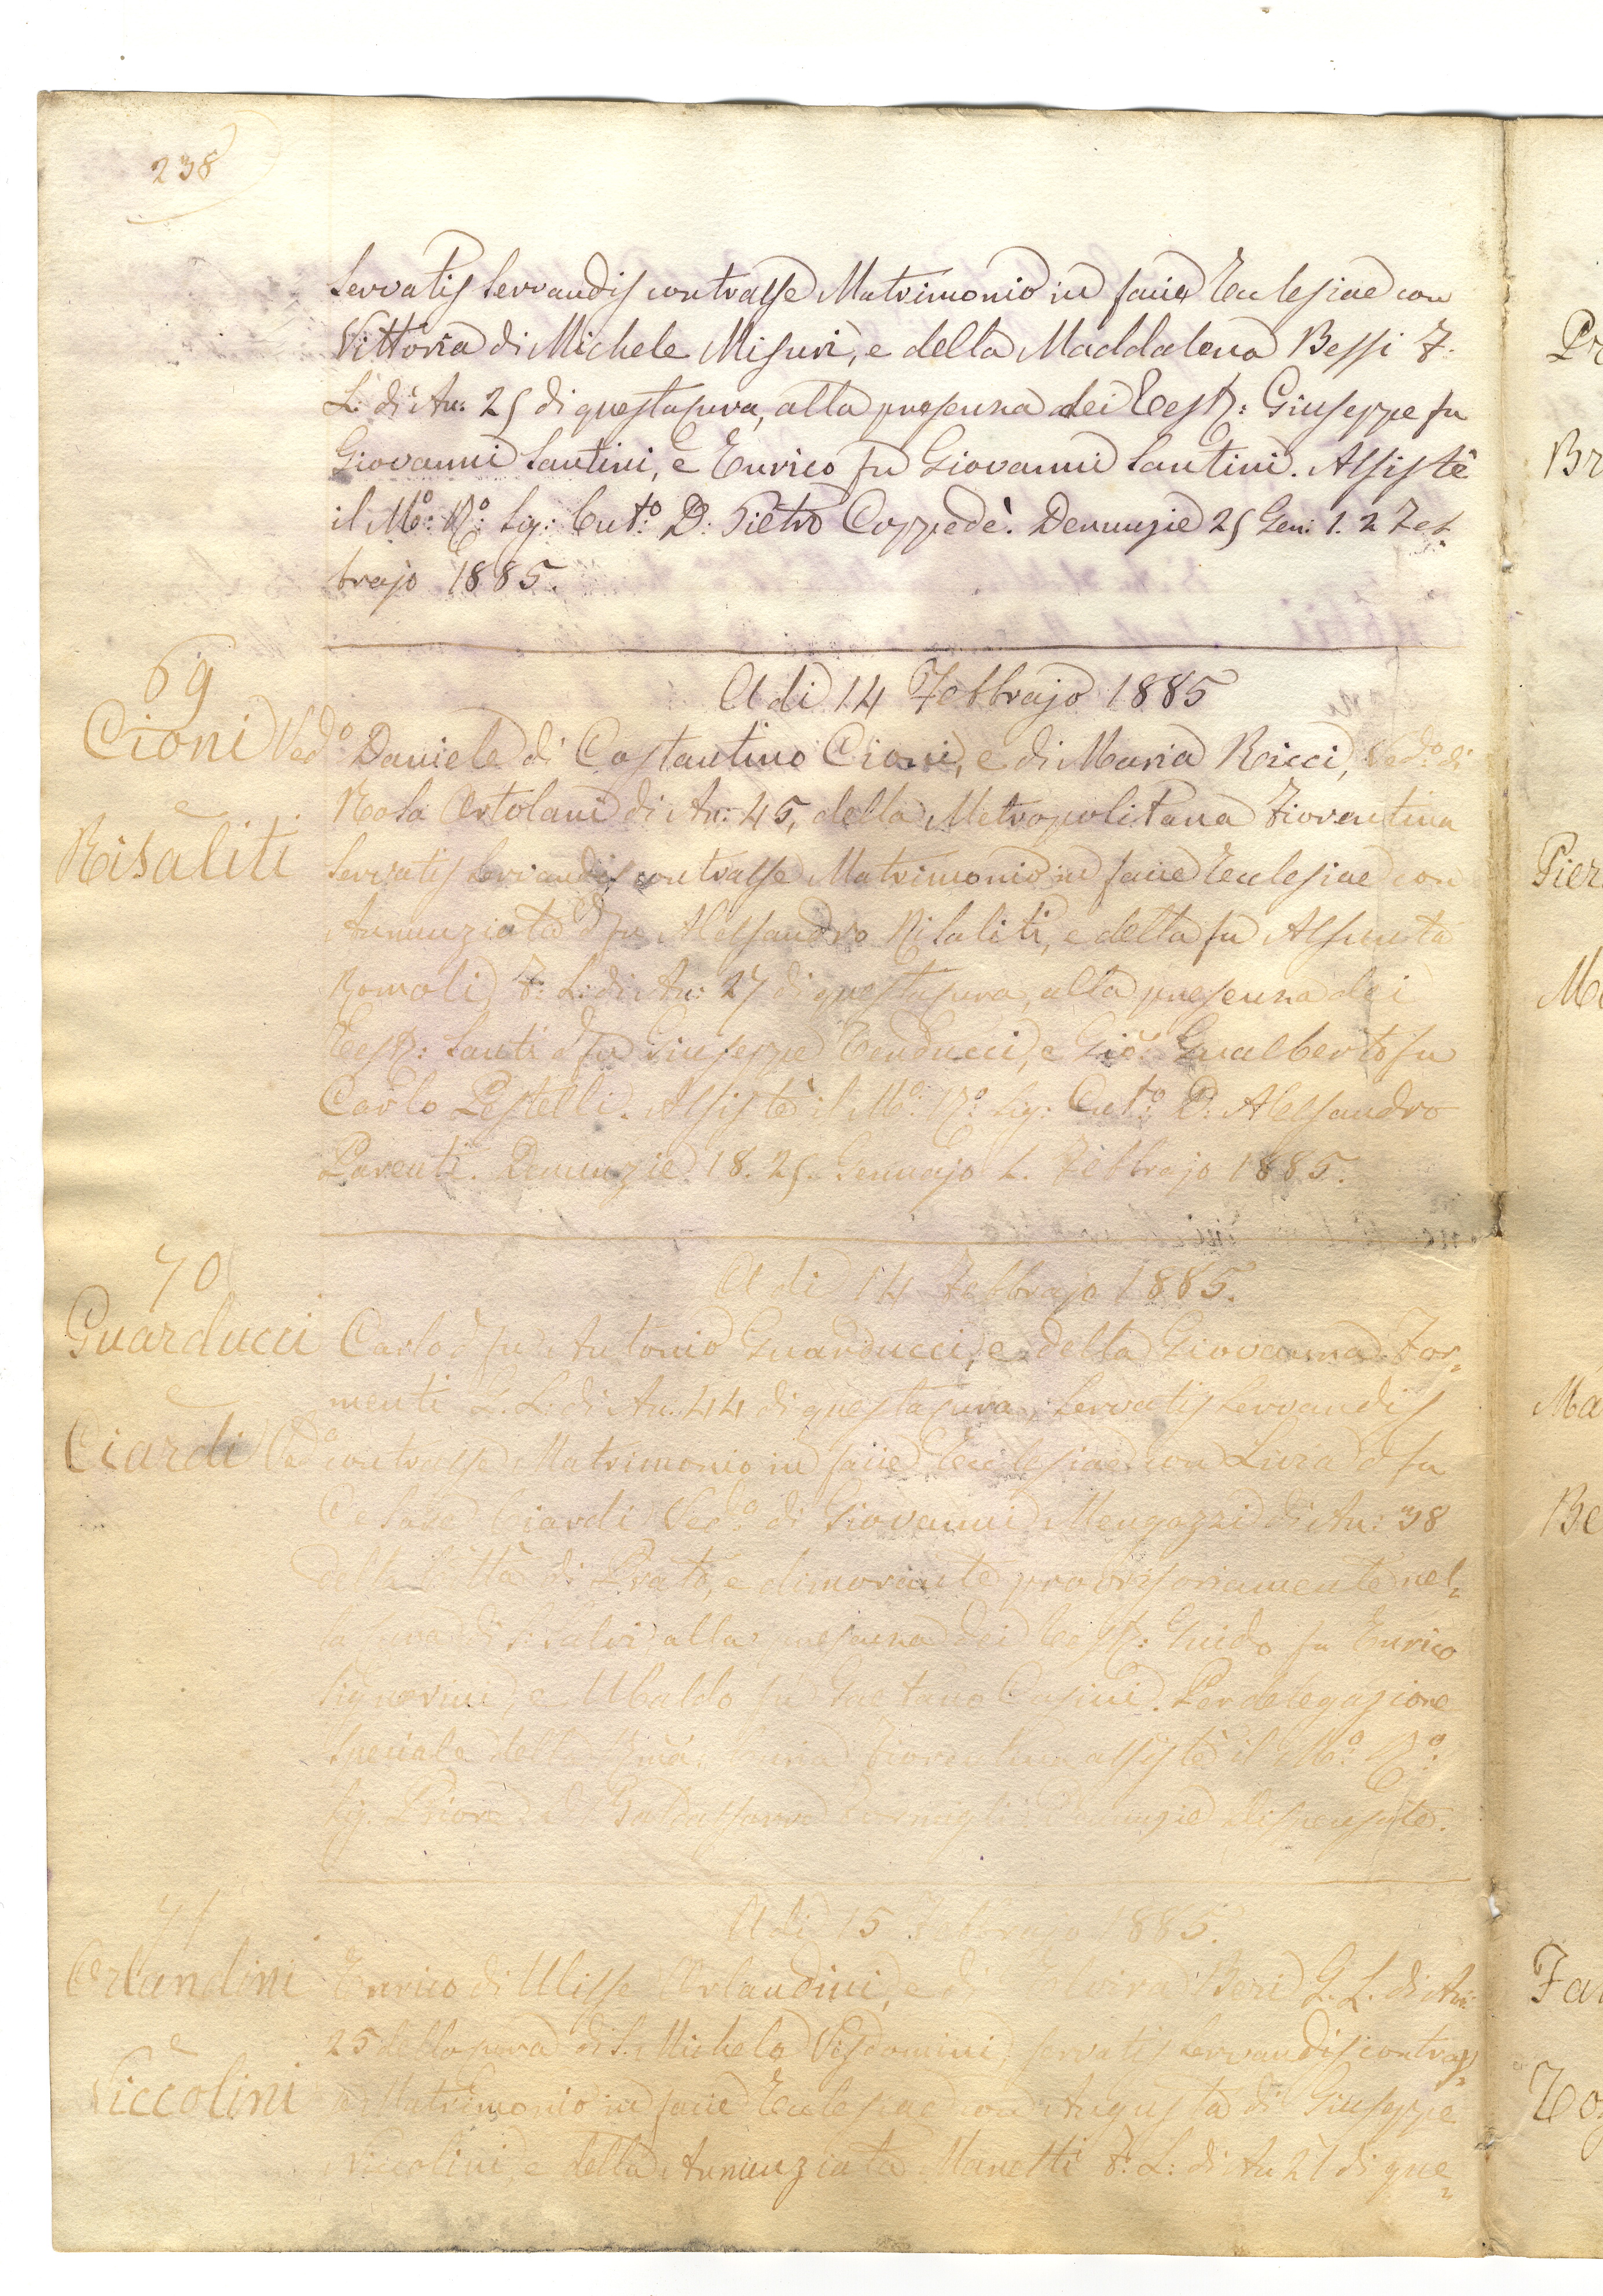 238
Servatis Servandis contrasse Matrimonio in facie Ecclesiae con
Vittoria di Michele Misuri, e della Maddalena Bessi F.
L: di An: 25 di questa cura, alla presenza dei Test: Giuseppe fu
Giovanni Santini, e Enrico fu Giovanni Santini. Assistè
il Mo: Ro: Sig: Cuto: D: Pietro Coppedè. Denunzie 25 Gen: 1. 2 Feb
brajo 1885.
69
A di 14 Febbrajo 1885
Cioni Vedo
Daniele di Costantino Cioni, e di Maria Ricci, Vedo: di
Rosa Ortolani di An: 45, della Metropolitana Fiorentina
e
Risaliti
Servatis Servandis contrasse Matrimonio in facie Ecclesiae con
Annunziata d fu Alessandro Risaliti, e della fu Assunta
Romoli F: L: di An: 27 di questa cura, alla presenza dei
Test: Santi d fu Giuseppe Tenducci, e Gio: Gualberto fu
Carlo Pestelli. Assistè il Mo: Ro: Sig: Cuto: D: Alessandro
Parenti. Denunzie 18. 25. Gennajo 2. Febbrajo 1885.
70
A di 14 Febbrajo 1885.
Guarducci
Carlo d fu Antonio Guarducci, e della Giovanna For=
menti G. L: di An: 44 di questa cura Servatis Servandis
e
Ciardi Veda
contrasse Matrimonio in facie Ecclesiae con Luisa d fu
Cesare Ciardi Veda di Giovanni Mengozzi di An: 38
della Città di Prato, e dimorante provvisoriamente nel=
la cura di S. Salvi alla presenza dei Test: Guido fu Enrico
Signorini, e Ubaldo fu Gaetano Casini. Per delegazione
Speciale della Curia Fiorentina assistè il Mo: Ro:
Sig. Priore D Baldassarre Denunzie dispensate.
71
A di 15 Febbrajo 1885.
Orlandini
Enrico di Ulisse Orlandini, e di Elvira Beri G. L. di An:
25 della cura di S. Michele Visdomini, servatis servandis contras=
e
Niccolini
se Matrimonio in facie Ecclesiae con Augusta di Giuseppe
Niccolini, e della Annunziata Manetti F: L: di An 21 di que=
Pr
Br
Pier
Ma
Be
Fa